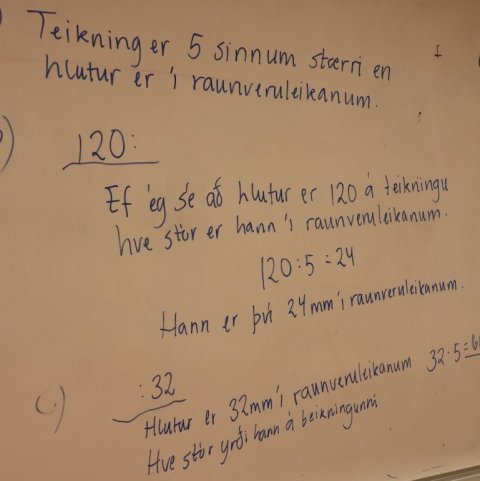 Teikning er 5 sinnum stærri en
hlutur er í raunveruleikanum.
120:
Ef ég sé að hlutur er 120 á teikningu
hve stór er hann í raunveruleikanum.
120:5 = 24
Hann er því 24mm í raunveruleikanum.
c)
:32
Hlutur er 32mm í raunveruleikanum 32·5=16
Hve stór yrði hann á teikningunni